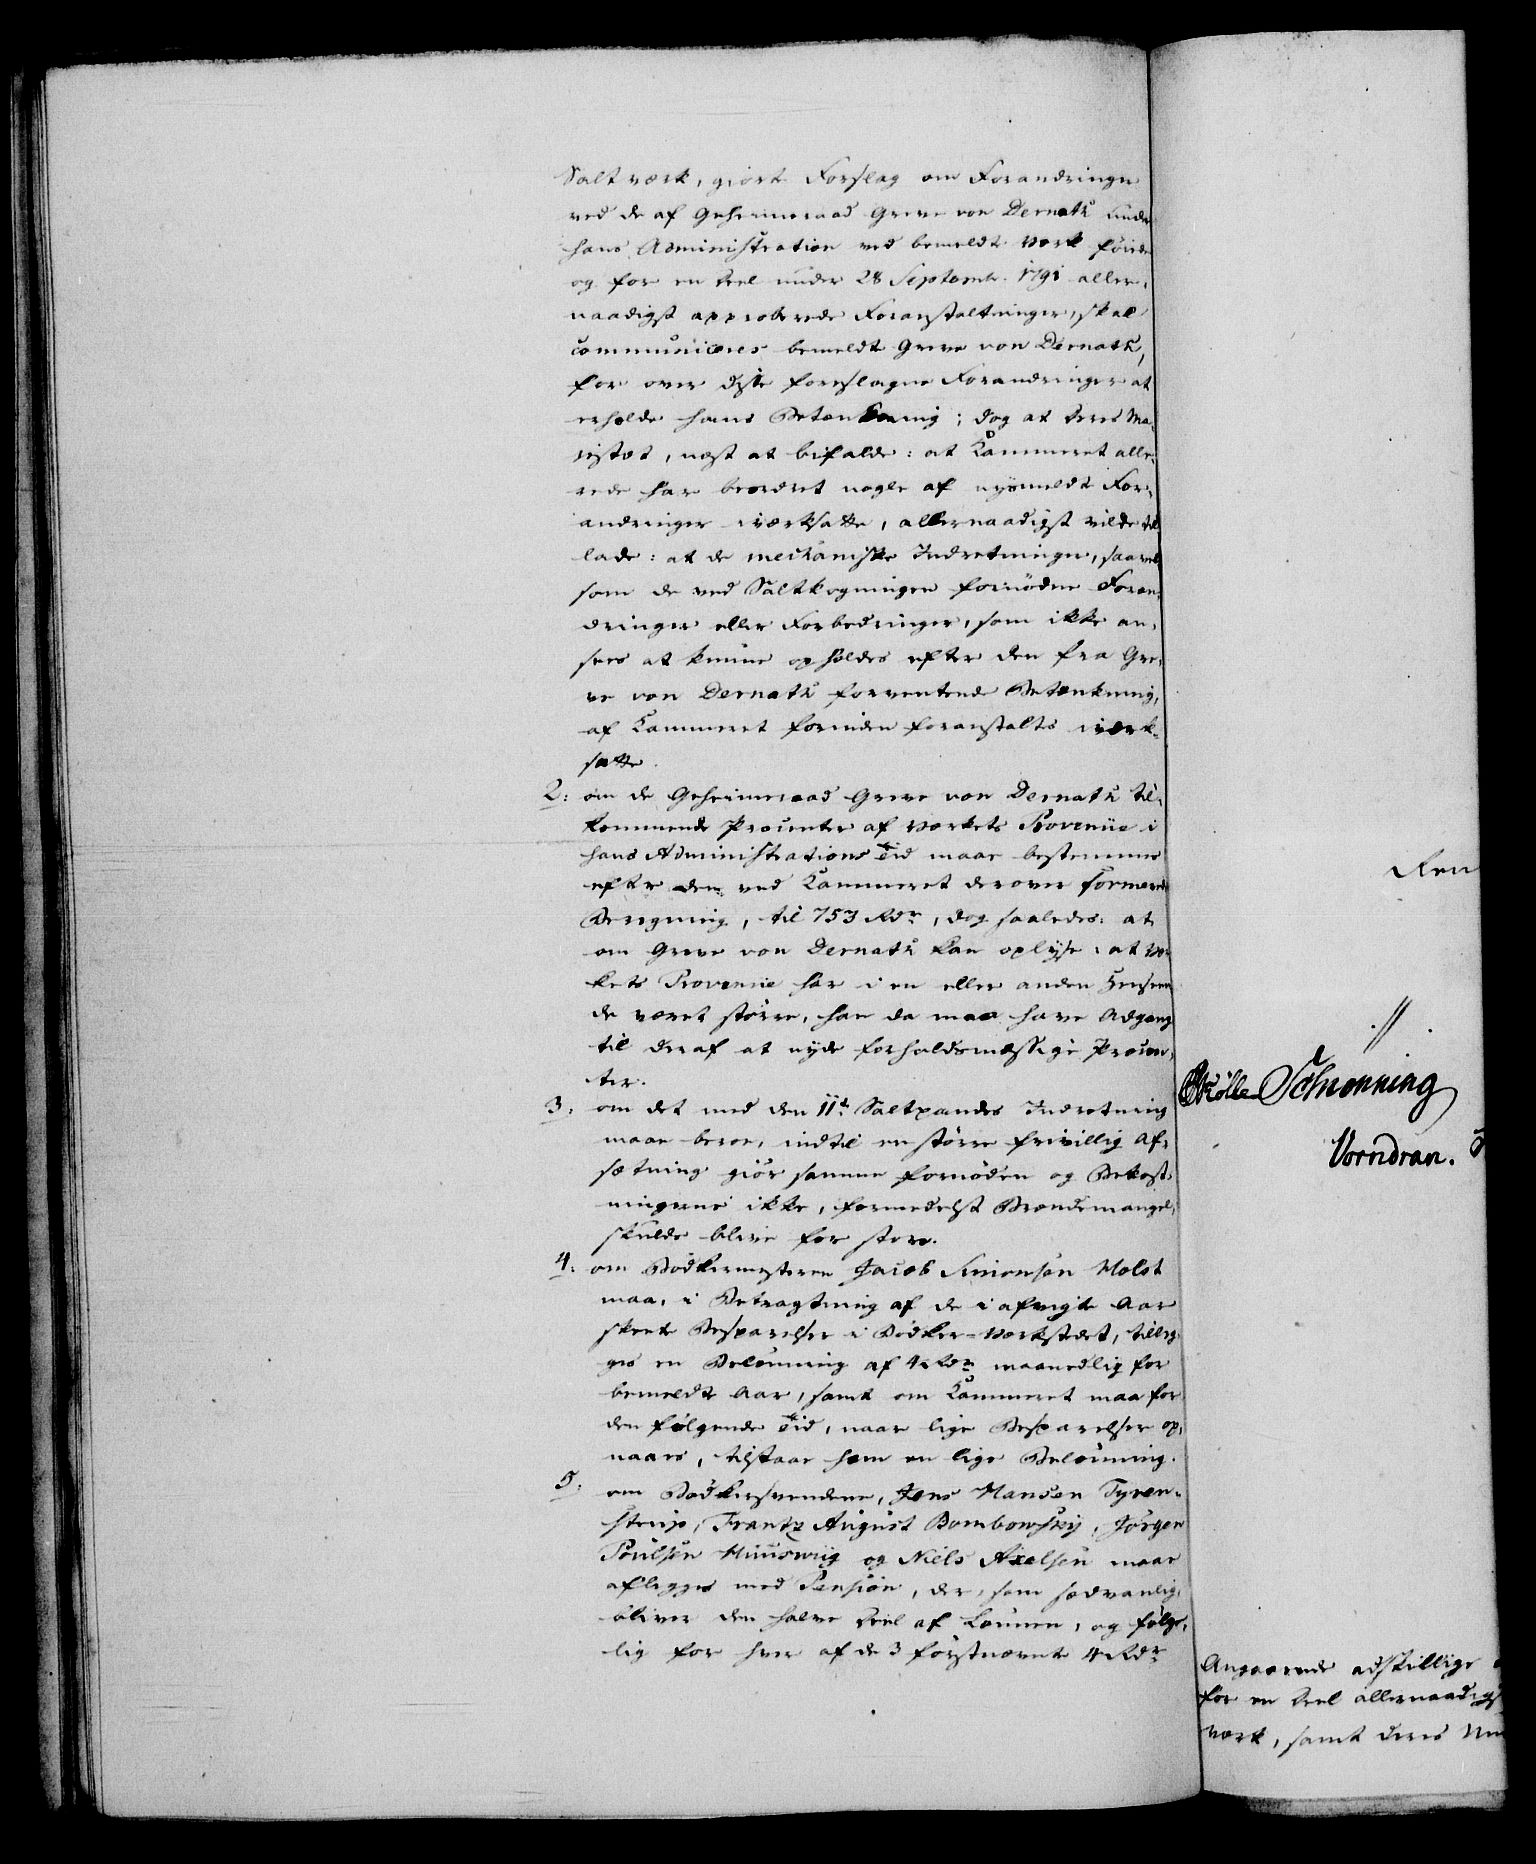 Saltværk, giort Forslag om Forandringer
ved de af Geheimeraad Greve von Dernath under
hans Administration ved bemeldte Værk føiede
og for en Deel under 28 Septembr. 1791 aller-
naadigst approberede Foranstaltninger, skal
communiceres bemeldte Greve von Dernath,
for over disse foreslagne Forandringer at
erholde hans Betænkning; dog at Deres Ma-
jestæt, næst at bifalde: at Kammeret alle-
rede har beordret nogle af nysmeldte For-
andringer iværksatte, allernaadigst vilde til-
lade: at de mechaniske Indretninger, saavel
som de ved Saltkogningen fornødne Foran-
dringer eller Forbedringer, som ikke an-
sees at kunne opholdes efter den fra Gre-
ve von Dernath forventende Betænkning,
af Kammeret forinden foranstaltes iværk-
satte.
2: om de Geheimeraad Greve von Dernath til-
kommende Procenter af Værkets Provenüe i
hans Administrations Tid maae bestemmes
efter den ved Kammeret derover formerede
Beregning, til 753 Rdr, dog saaledes: at
om Greve von Dernath kan oplyse: at Vær-
kets Provenüe har i en eller anden Henseen-
de været større, han da maa have Adgang
til deraf at nyde forholdsmæssige Procen-
ter.
3: om det med den 11te Saltpandes Indretning
maae beroe, indtil en større frivillig Af-
sætning giør samme fornøden og Bekost-
ningerne ikke, formedelst Brændemangel,
skulde blive for store.
4: om Bødkermesteren Jacob Simonsen Holst
maa, i Betragtning af de i afvigte Aar
skeete Besparelser i Bødker-Værkstedet, tillæg-
ges en Belønning af 4 Rdr maanedlig for
bemeldte Aar, samt om Kammeret maa for
den følgende Tid, naar lige Besparelser op-
naaes, tilstaae ham en lige Belønning.
5: om Bødkersvendene, Jens Hansen Tyren-
strup, Frantz August Bombowsky, Jørgen
Poulsen Huuswiig og Niels Axelsen maae
aflægges med Pension, der, som sædvanlig,
bliver den halve Deel af Lønnen, og følge-
lig for hver af de 3 førstnævnte 4 Rdr
Ren
Schønning
Vorndran.
Angaaende adskillige
for en Deel allernaadigst
Værk, samt deres